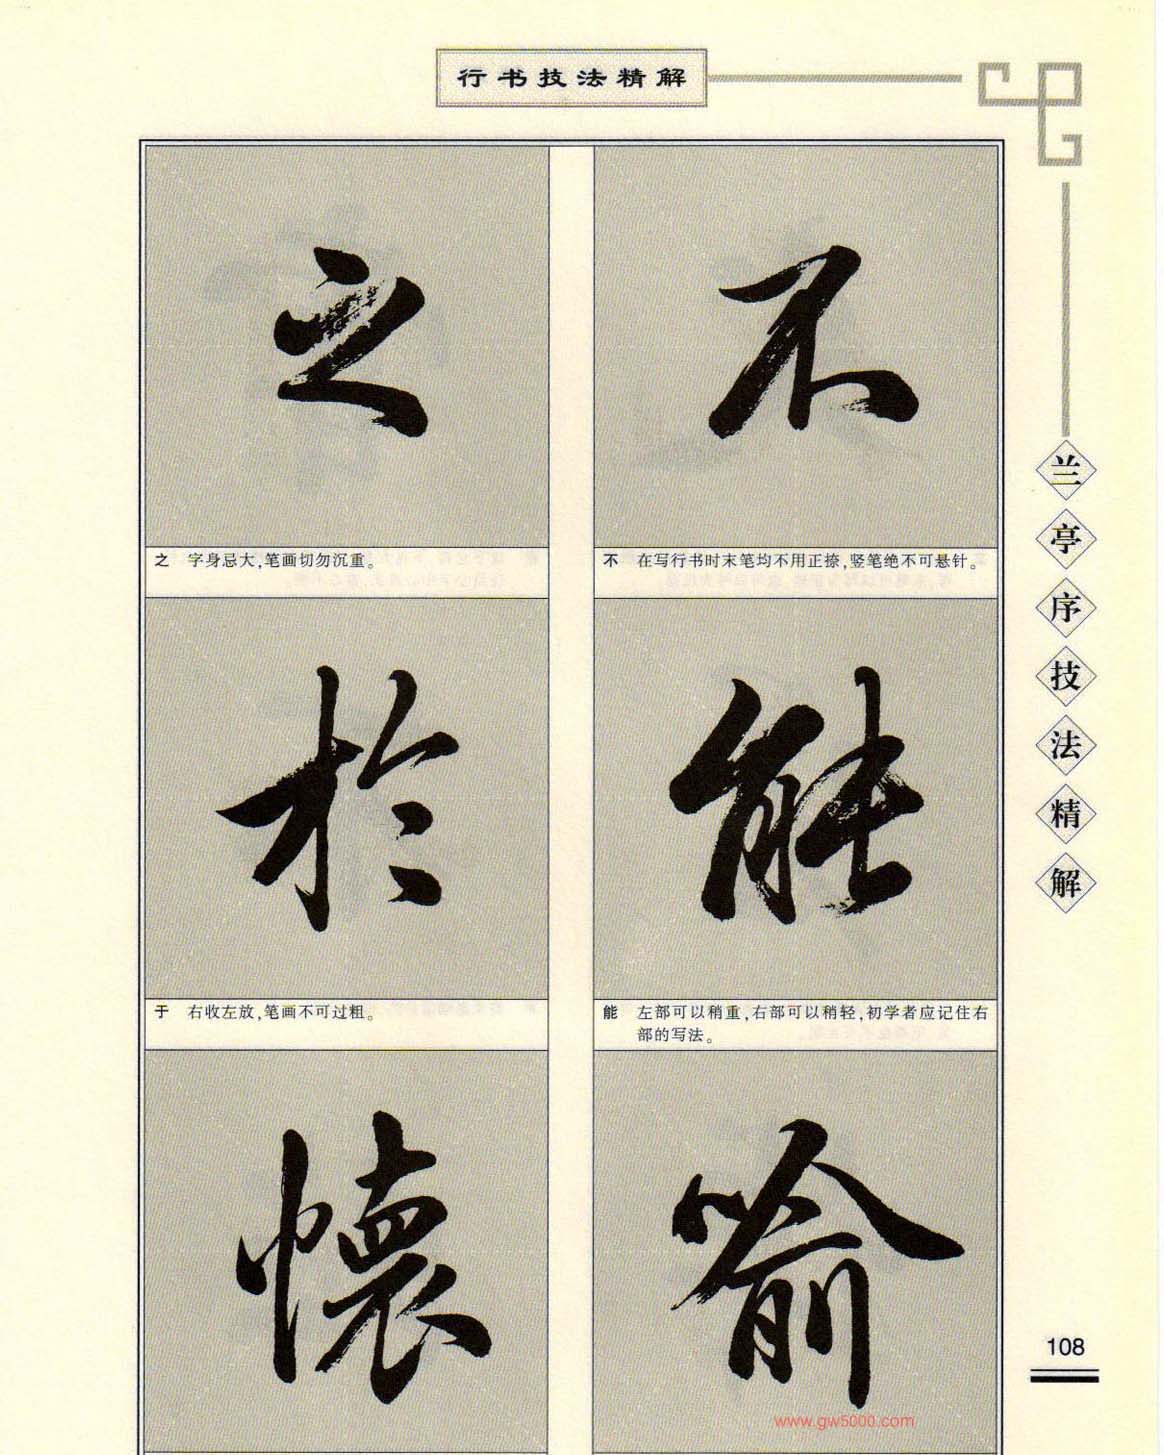 行书技法精解
不
之
不 在写行书时末笔均不用正捺,竖笔绝不可悬针。
之 字身忌大,笔画切勿沉重。
能
於
能 左部可以稍重,右部可以稍轻,初学者应记住右
部的写法。
于 右收左放,笔画不可过粗。
喻
懷
兰亭序技法精解
108
www.gw5000.com